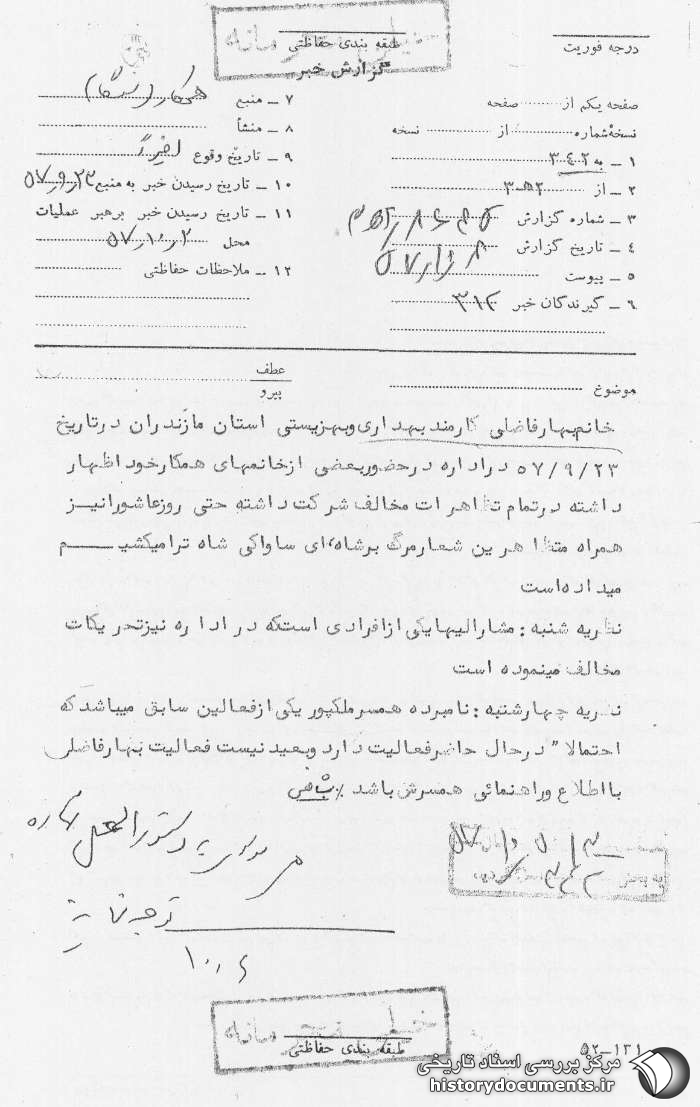 خیلی محرمانه
طبقه بندی حفاظتی
درجه فوریت
گزارش خبر
صفحه یکم از صفحه
نسخه شماره از نسخه
۱ ـ به ۳۴۲
۲ ـ از ۳ـه۲
۳ ـ شماره گزارش
۴ ـ تاریخ گزارش
۵ ـ پیوست
۶ ـ گیرندگان خبر ۳۱۲
۷ ـ منبع همکار
۸ ـ منشأ
۹ ـ تاریخ وقوع اخیراً
۱۰ ـ تاریخ رسیدن خبر به منبع ۵۷٫۹٫۲۳
۱۱ ـ تاریخ رسیدن خبر برهبر عملیات
محل ۵۷٫۱۰٫۲
۱۲ ـ ملاحظات حفاظتی
موضوع
عطف
پیرو
خانم بهارفاضلی کارمند بهداری وبهزیستی استان مازندران درتاریخ
۵۷/۹/۲۳ دراداره درحضوربعضی ازخانمهای همکارخود اظهار
داشته درتمام تظاهرات مخالف شرکت داشته حتی روزعاشورانیز
همراه متظاهرین شعارمرگ برشاه،ای ساواکی شاه ترامیکشیم
میداده‌است
نظریه شنبه : مشارالیهایکی ازافرادی استکه دراداره نیزتحریکات
مخالف مینموده است
نظریه چهارشنبه : نامبرده همسرملکپور یکی ازفعالین سابق میباشد که
احتمالا" درحال حاضرفعالیت دارد وبعید نیست فعالیت بهارفاضلی
با اطلاع وراهنمائی همسرش باشد ٪
دستورالعمل
توجه
۱۰٫۶
خیلی محرمانه
طبقه بندی حفاظتی
۵۲ـ۱۳۱
مرکز بررسی اسناد تاریخی
historydocuments.ir